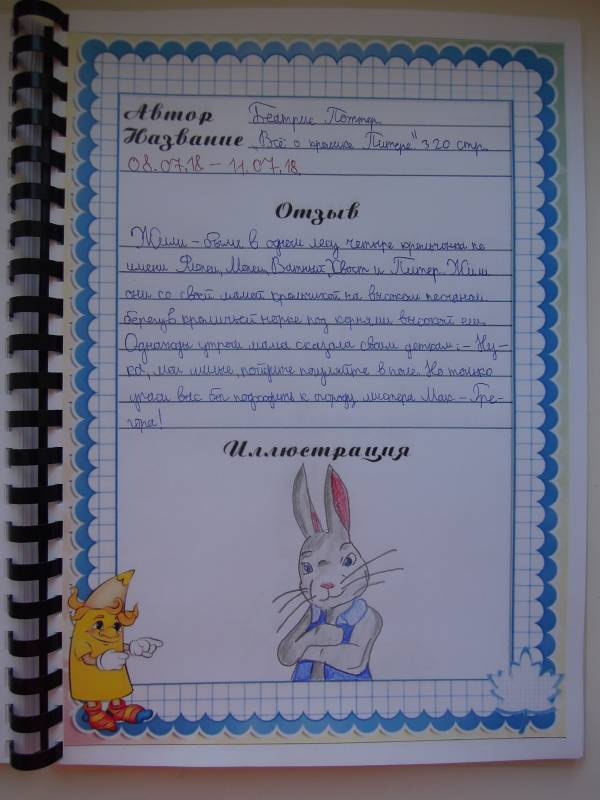 Автор Беатрис Поттер
Название „Всё о кролике Питере" 320 стр.
08.07.18 – 11.07.18.
Отзыв
Жили – были в одном лесу четыре крольчонка по
имени Флопси, Мопси, Ватный Хвост и Питер. Жили
они со своей мамой крольчихой на высоком песчаном
берегу в кроличьей норке под корнями высокой ели.
Однажды утром мама сказала своим деткам: – Ну-
ка, мои милые, пойдите погуляйте в поле. Но только
упаси вас бог подходить к огороду мистера Мак – Гре-
гора!
Иллюстрация